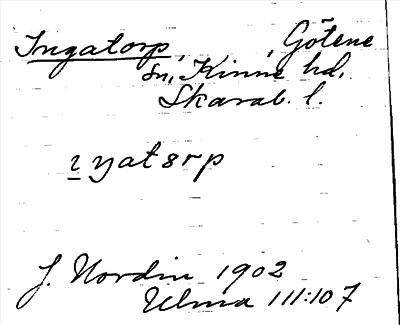 Ingatorp, , Götene
sn, Kinne hd.
Skarab. l.
ı̲ŋatɜrp
J. Nordin 1902
Ulma 111:107